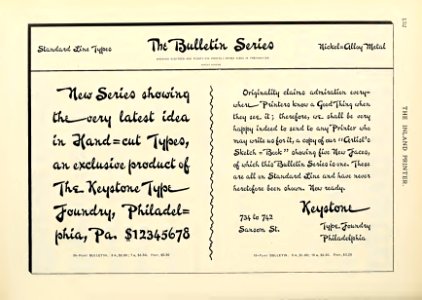 132
THE INLAND PRINTER.
Standard Line Types
The Bulletin Series
Nickel=Alloy Metal
New Series showing
the very latest idea
in Hand=cut Types,
an exclusive product of
The Keystone Type
Foundry, Philadel=
phia, Pa. $12345678
Originality claims admiration every-
where. Printers know a Good Thing when
they see it; therefore, we shall be very
happy indeed to send to any Printer who
may write us for it, a copy of our "Artist's
Sketch = Book" showing five New Faces,
of which this Bulletin Series is one. These
are all on Standard Line and have never
heretofore been shown. Now ready.
Keystone
734 to 742
Sansom St.
Type Foundry
Philadelphia